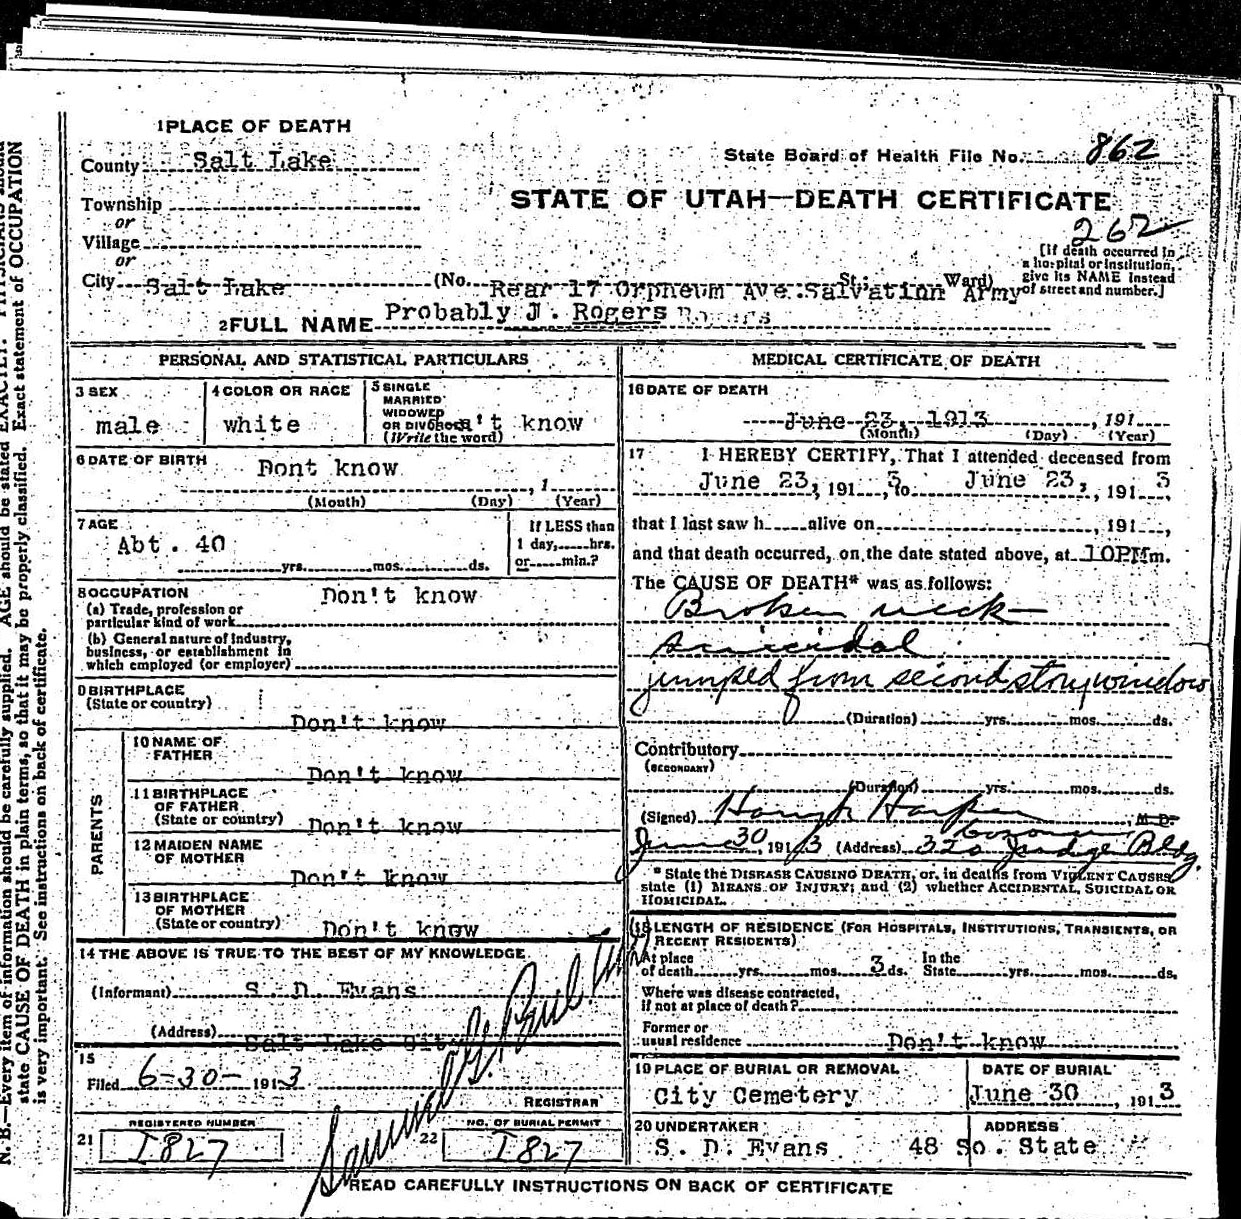 1 PLACE OF DEATH
County Salt Lake
State Board of Health File No. 862
STATE OF UTAH—DEATH CERTIFICATE
Township
or
Village
or
262
[If death occurred in
a hospital or institution,
give its NAME instead
of street and number.]
City Salt Lake (No. Rear 17 Orpheum Ave. Salvation Army St.; Ward)
2 FULL NAME Probably J. Rogers Rogers
PERSONAL AND STATISTICAL PARTICULARS
3 SEX
male
4 COLOR OR RACE
white
5 SINGLE
MARRIED
WIDOWED
OR DIVORCED
(Write the word)
't know
6 DATE OF BIRTH Dont know
, 1
(Month) (Day) (Year)
7 AGE
Abt. 40
yrs. mos. ds.
If LESS than
1 day, hrs.
or min.?
8 OCCUPATION Don't know
(a) Trade, profession or
particular kind of work
(b) General nature of industry,
business, or establishment in
which employed (or employer)
9 BIRTHPLACE
(State or country)
Don't know
PARENTS
10 NAME OF
FATHER
Don't know
11 BIRTHPLACE
OF FATHER
(State or country) Don't know
12 MAIDEN NAME
OF MOTHER
Don't know
13 BIRTHPLACE
OF MOTHER
(State or country) Don't know
14 THE ABOVE IS TRUE TO THE BEST OF MY KNOWLEDGE
(Informant) S. D. Evans
(Address) Salt Lake City
15
Filed 6-30- 1913
REGISTRAR
REGISTERED NUMBER
21 1827
NO. OF BURIAL PERMIT
22 1827
MEDICAL CERTIFICATE OF DEATH
16 DATE OF DEATH
June 23, 1913 , 191
(Month) (Day) (Year)
17 I HEREBY CERTIFY, That I attended deceased from
June 23, 191 3, to June 23, , 191 3
that I last saw h alive on , 191 ,
and that death occurred, on the date stated above, at 10PM m.
The CAUSE OF DEATH* was as follows:
Broken neck
suicidal
jumped from second story window
(Duration) yrs. mos. ds.
Contributory
(SECONDARY)
(Duration) yrs. mos. ds.
(Signed) Harper M. D.
Coroner
June 30, 1913 (Address) 320 Judge Bldg.
* State the DISEASE CAUSING DEATH, or, in deaths from VIOLENT CAUSES,
state (1) MEANS OF INJURY; and (2) whether ACCIDENTAL, SUICIDAL OR
HOMICIDAL.
18 LENGTH OF RESIDENCE (FOR HOSPITALS, INSTITUTIONS, TRANSIENTS, OR
RECENT RESIDENTS)
At place
of death yrs. mos. 3 ds. In the
State yrs. mos. ds.
Where was disease contracted,
if not at place of death?
Former or
usual residence Don't know
19 PLACE OF BURIAL OR REMOVAL
City Cemetery
DATE OF BURIAL
June 30 , 191 3
20 UNDERTAKER
S. D. Evans
ADDRESS
48 So. State
READ CAREFULLY INSTRUCTIONS ON BACK OF CERTIFICATE
N. B.—Every item of information should be carefully supplied. AGE should be stated EXACTLY. PHYSICIANS should
state CAUSE OF DEATH in plain terms, so that it may be properly classified. Exact statement of OCCUPATION
is very important. See instructions on back of certificate.